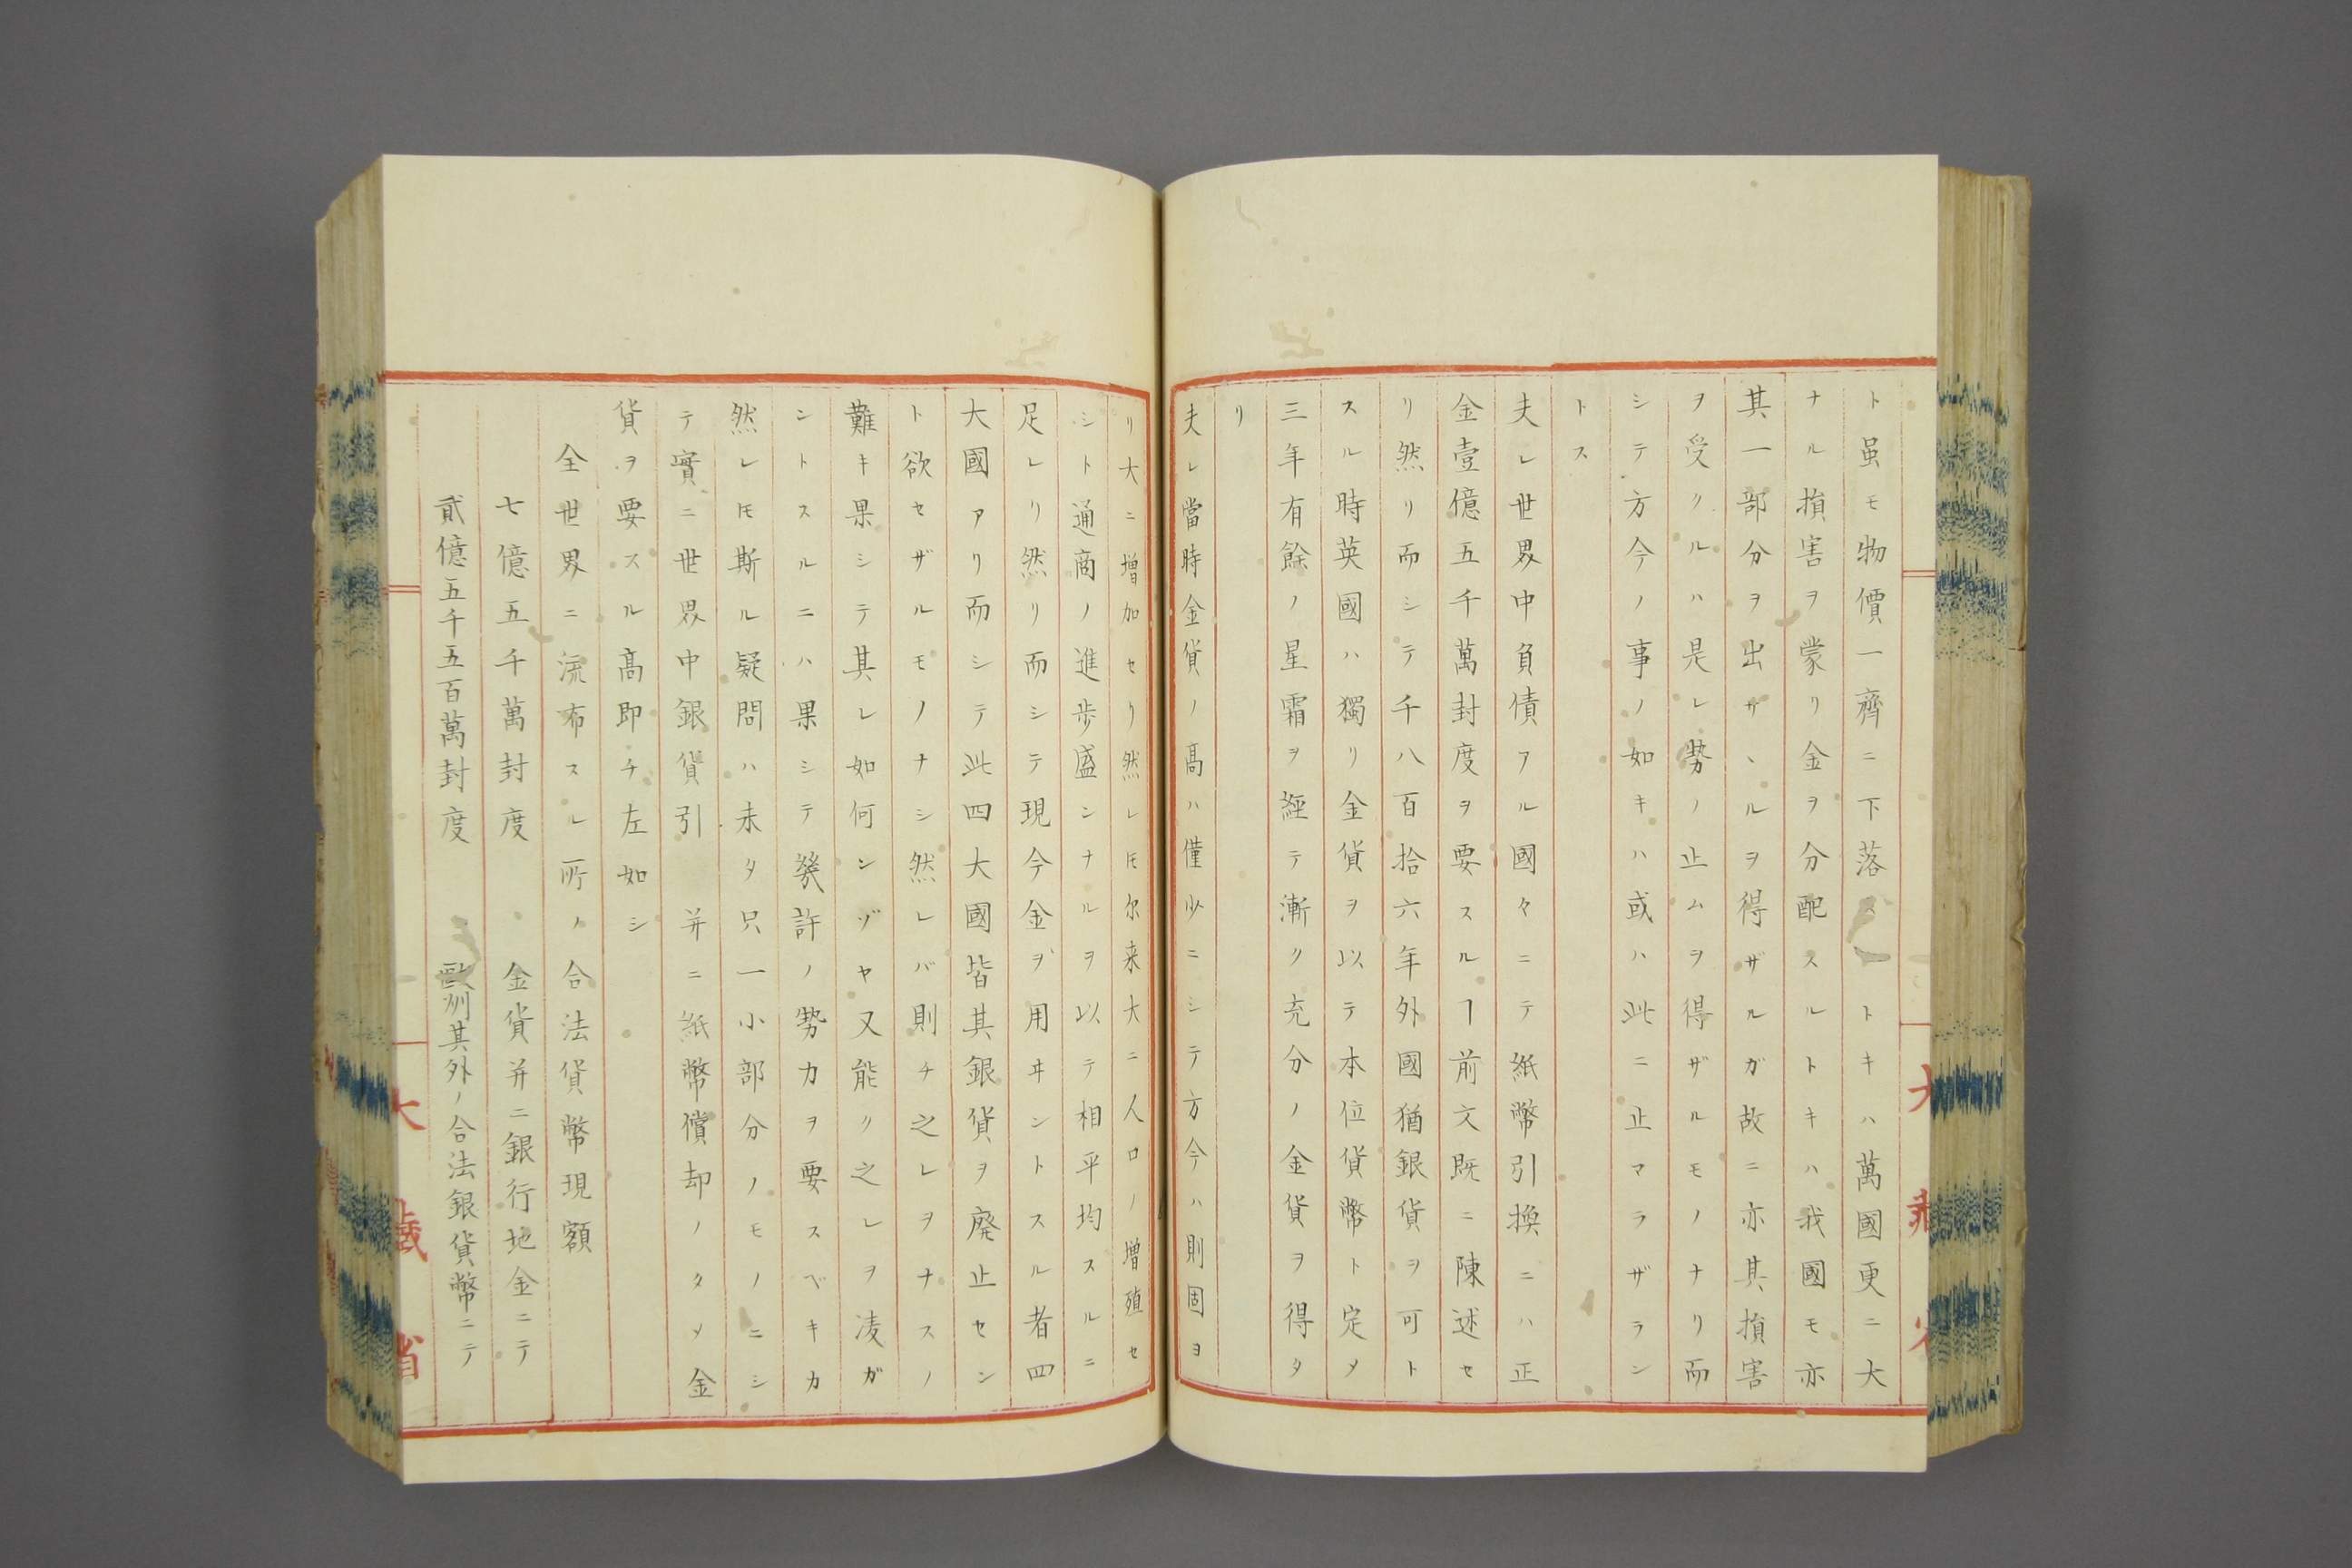 ト虽モ物價一齊ニ下落スルトキハ萬國更ニ大
ナル損害ヲ蒙リ金ヲ分配スルトキハ我國モ亦
其一部分ヲ出サヽルヲ得ザルガ故ニ亦其損害
ヲ受クルハ是レ勢ノ止ムヲ得ザルモノナリ而
シテ方今ノ事ノ如キハ或ハ此ニ止マラザラン
トス
夫レ世界中負債アル國々ニテ紙幣引換ニハ正
金壹億五千萬封度ヲ要スルヿ前文既ニ陳述セ
リ然リ而シテ千八百拾六年外國猶銀貨ヲ可ト
スル時英國ハ獨リ金貨ヲ以テ本位貨幣ト定メ
三年有餘ノ星霜ヲ經テ漸ク充分ノ金貨ヲ得タ
リ
夫レ當時金貨ノ高ハ僅少ニシテ方今ハ則固ヨ
リ大ニ増加セリ然レ𪜈尓来大ニ人口ノ増殖セ
シト通商ノ進歩盛ンナルヲ以テ相平均スルニ
足レリ然リ而シテ現今金ヲ用ヰントスル者四
大國アリ而シテ此四大國皆其銀貨ヲ廃止セン
ト欲セザルモノナシ然レバ則チ之レヲナスノ
難キ果シテ其レ如何ンゾヤ又能ク之レヲ凌ガ
ントスルニハ果シテ幾許ノ勢力ヲ要スベキカ
然レ𪜈斯ル疑問ハ未タ只一小部分ノモノニシ
テ實ニ世界中銀貨引 并ニ紙幣償却ノタメ金
貨ヲ要スル高即チ左如シ
全世界ニ流布スル所ノ合法貨幣現額
七億五千萬封度 金貨并ニ銀行地金ニテ
貳億五千五百萬封度 歐洲其外ノ合法銀貨幣ニテ
大藏省